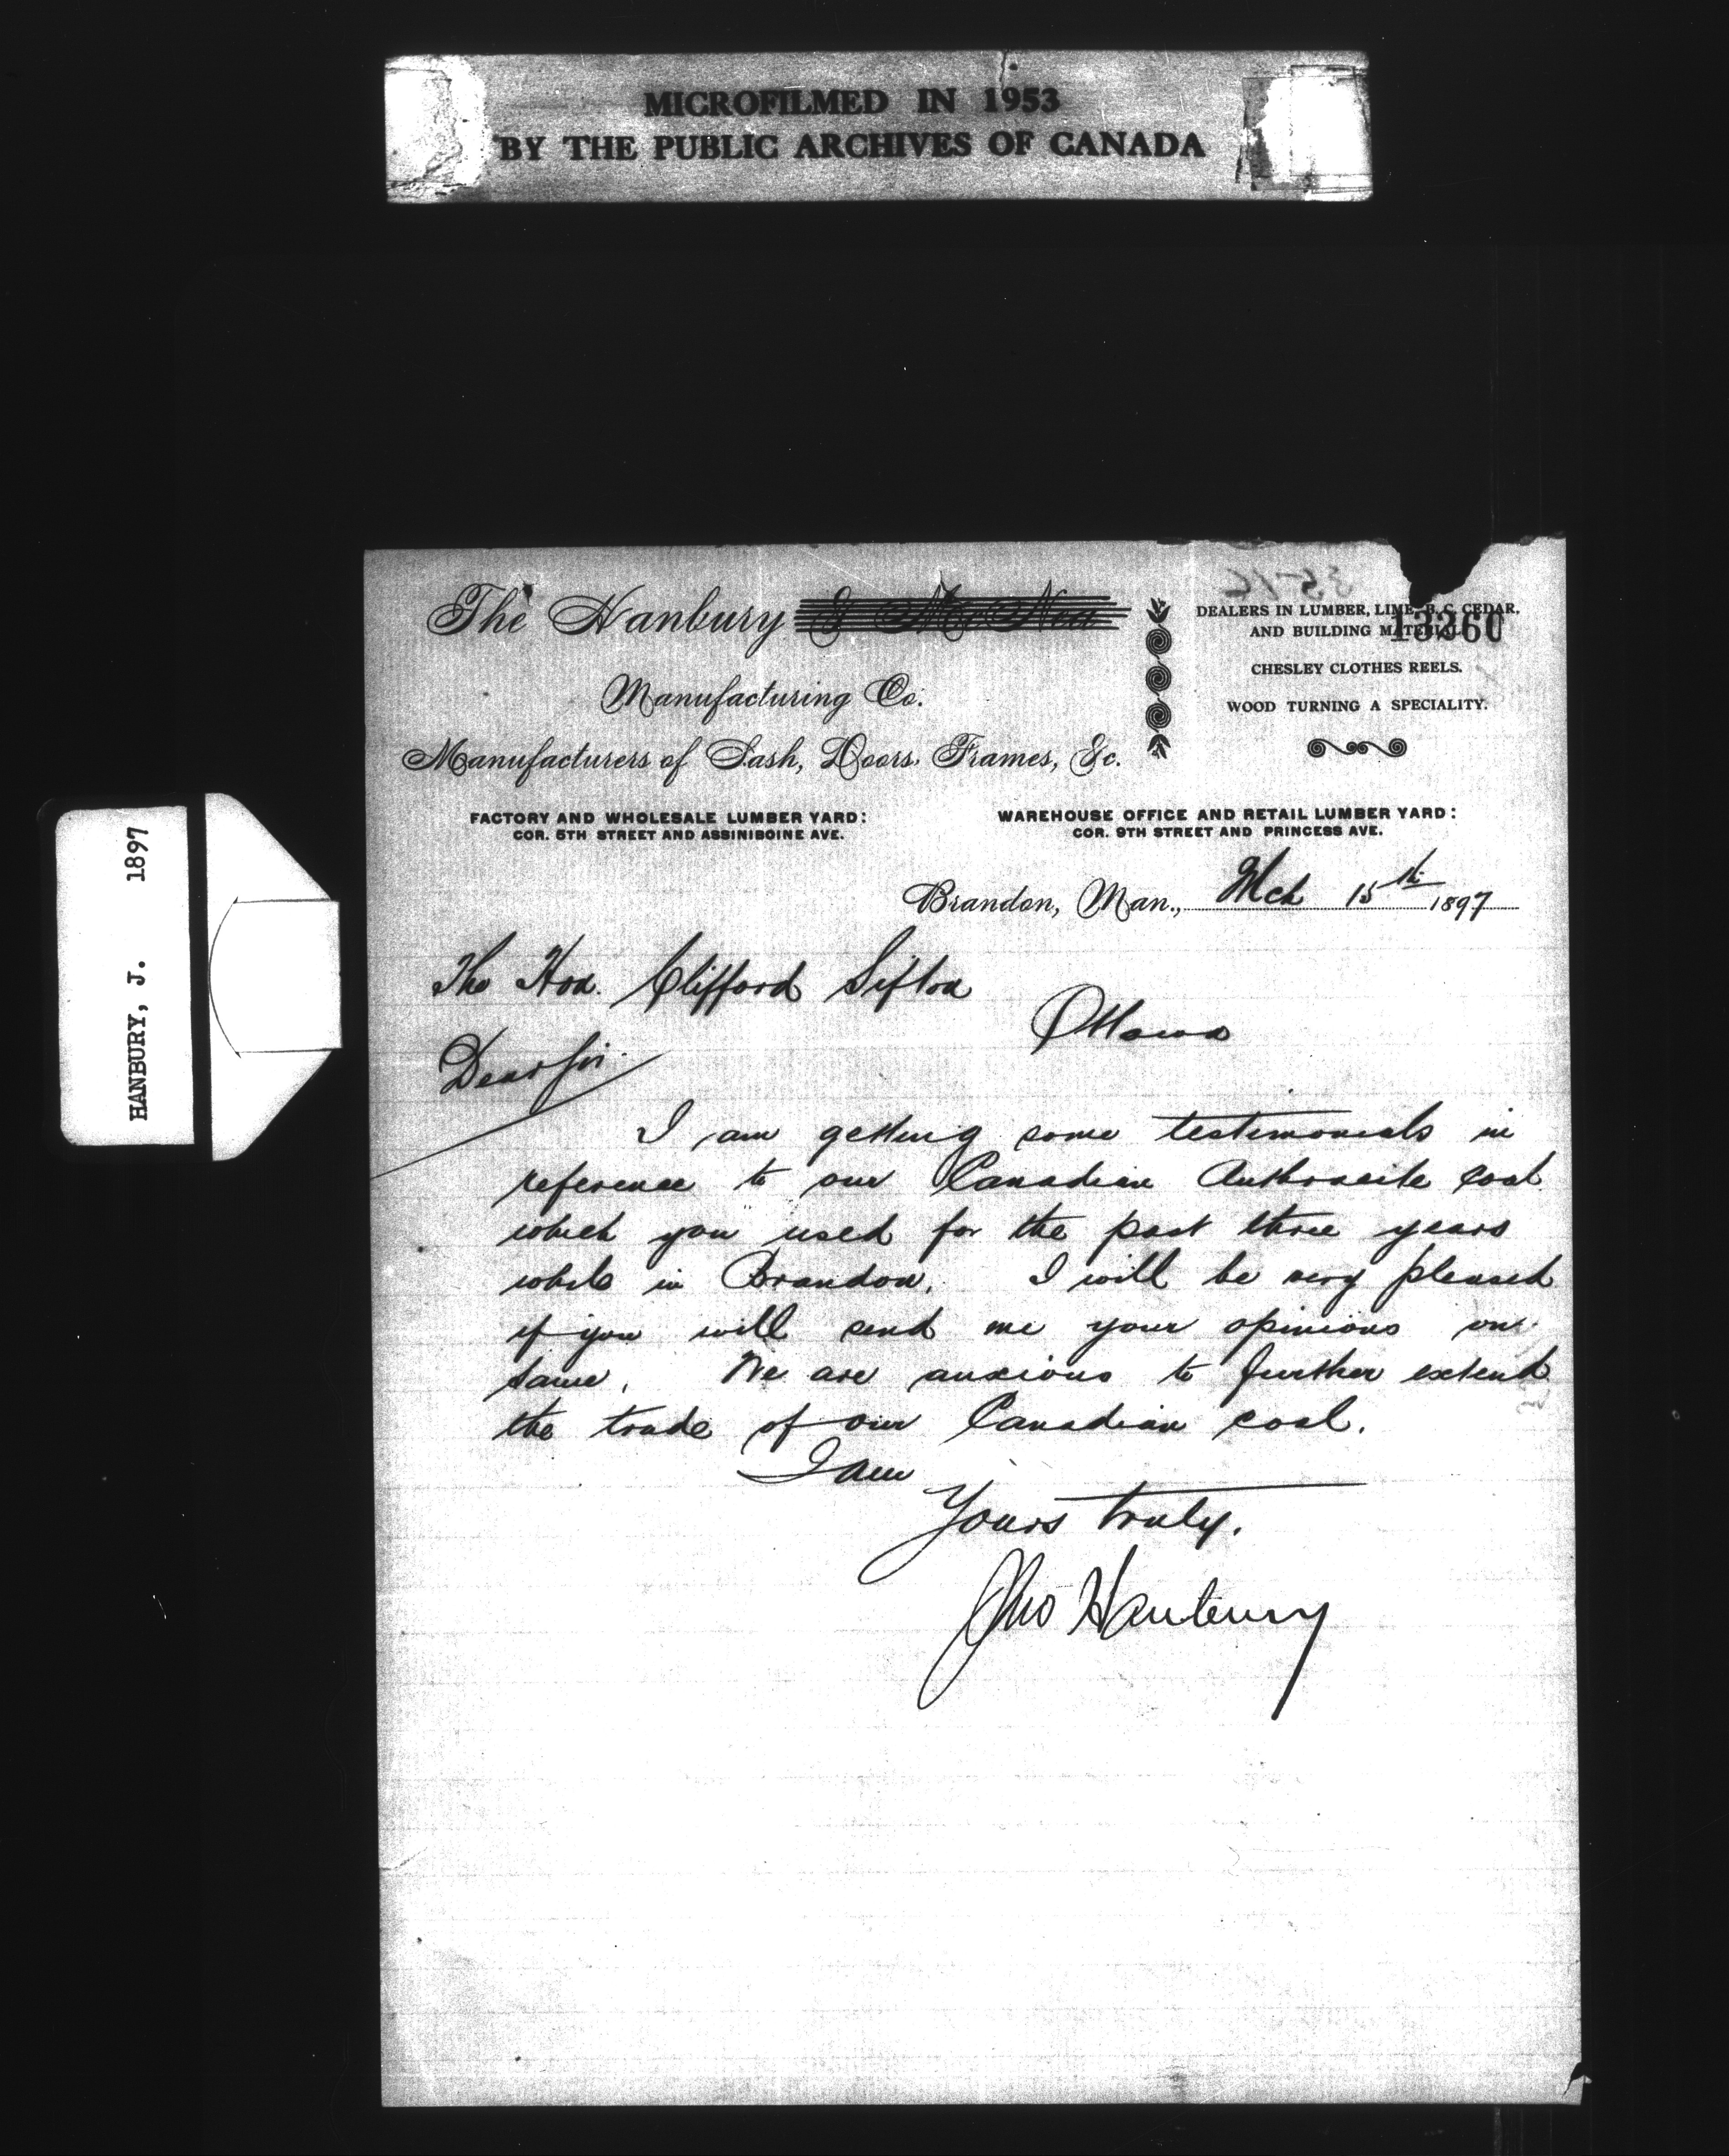 MICROFILMED IN 1953
BY THE PUBLIC ARCHIVES OF CANADA
HANBURY, J. 1897
The Hanbury & Mc Nea
Manufacturing Co.
Manufacturers of Sash, Doors, Frames, &c.
DEALERS IN LUMBER, LIME, B. C. CEDAR,
AND BUILDING MATERIAL
13260
CHESLEY CLOTHES REELS.
WOOD TURNING A SPECIALITY.
FACTORY AND WHOLESALE LUMBER YARD:
COR. 5TH STREET AND ASSINIBOINE AVE.
WAREHOUSE OFFICE AND RETAIL LUMBER YARD:
COR. 9TH STREET AND PRINCESS AVE.
Brandon, Man., Mch 15th 1897
The Hon. Clifford Sifton
Ottawa
Dear Sir
I am getting some testimonials in
reference to our Canadian Anthracite coal
which you used for the past three years
while in Brandon. I will be very pleased
if you will send me your opinions on
same. We are anxious to further extend
the trade of our Canadian coal.
I am
Yours truly.
Jno Hanbury